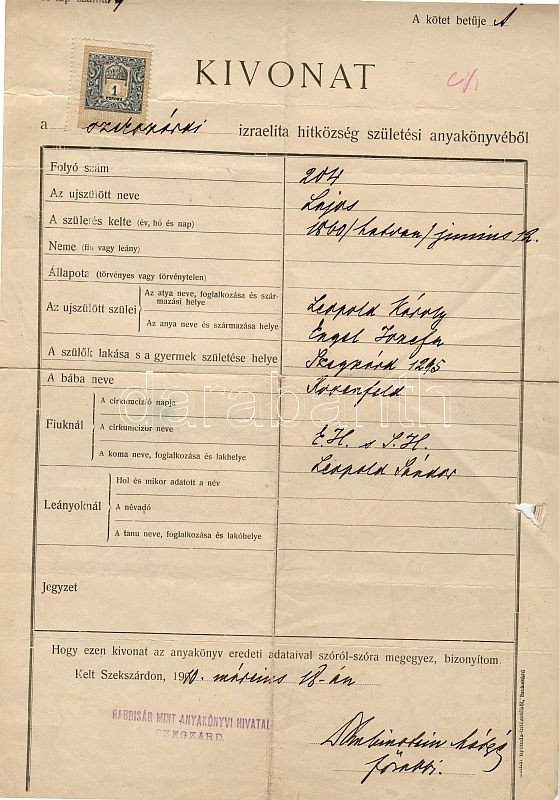 A kötet betűje A
KIVONAT
1
a szekszárdi izraelita hitközség születési anyakönyvéből
Folyó szám 204
Az ujszülött neve Lajos
A születés kelte (év, hó és nap) 1860/hatvan/junius 12.
Neme (fiu vagy leány)
Állapota (törvényes vagy törvénytelen)
Az ujszülött szülei
Az atya neve, foglalkozása és származási helye Leopold Károly
Az anya neve és származása helye Engel Jozefa
A szülők lakása s a gyermek születése helye Szegzárd 1295
A bába neve Rosenfeld
Fiuknál
A cirkumcizió napja
A cirkumcizor neve E.H. s S.H.
A koma neve, foglalkozása és lakhelye Leopold Sándor
Leányoknál
Hol és mikor adatott a név
A névadó
A tanu neve, foglalkozása és lakóhelye
Jegyzet
darabanth
Hogy ezen kivonat az anyakönyv eredeti adataival szóról-szóra megegyez, bizonyitom.
Kelt Szekszárdon, 1910. március 18-án
RABBISÁG MINT ANYAKÖNYVI HIVATAL
SZEGZÁRD.
főrabbi.